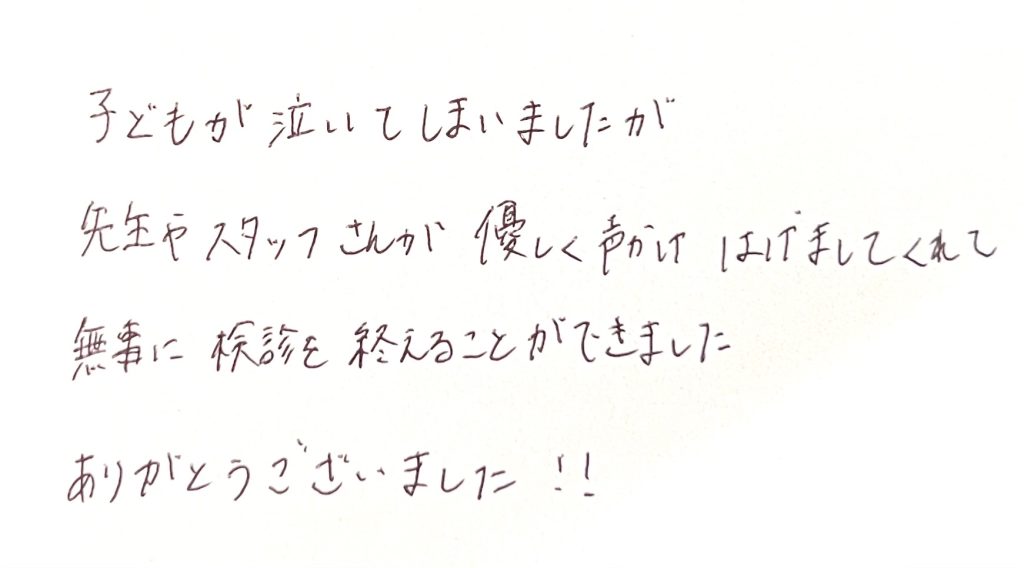 子どもが泣いてしまいましたが
先生やスタッフさんが 優しく声かけ はげましてくれて
無事に 検診を 終えることができました
ありがとうございました!!